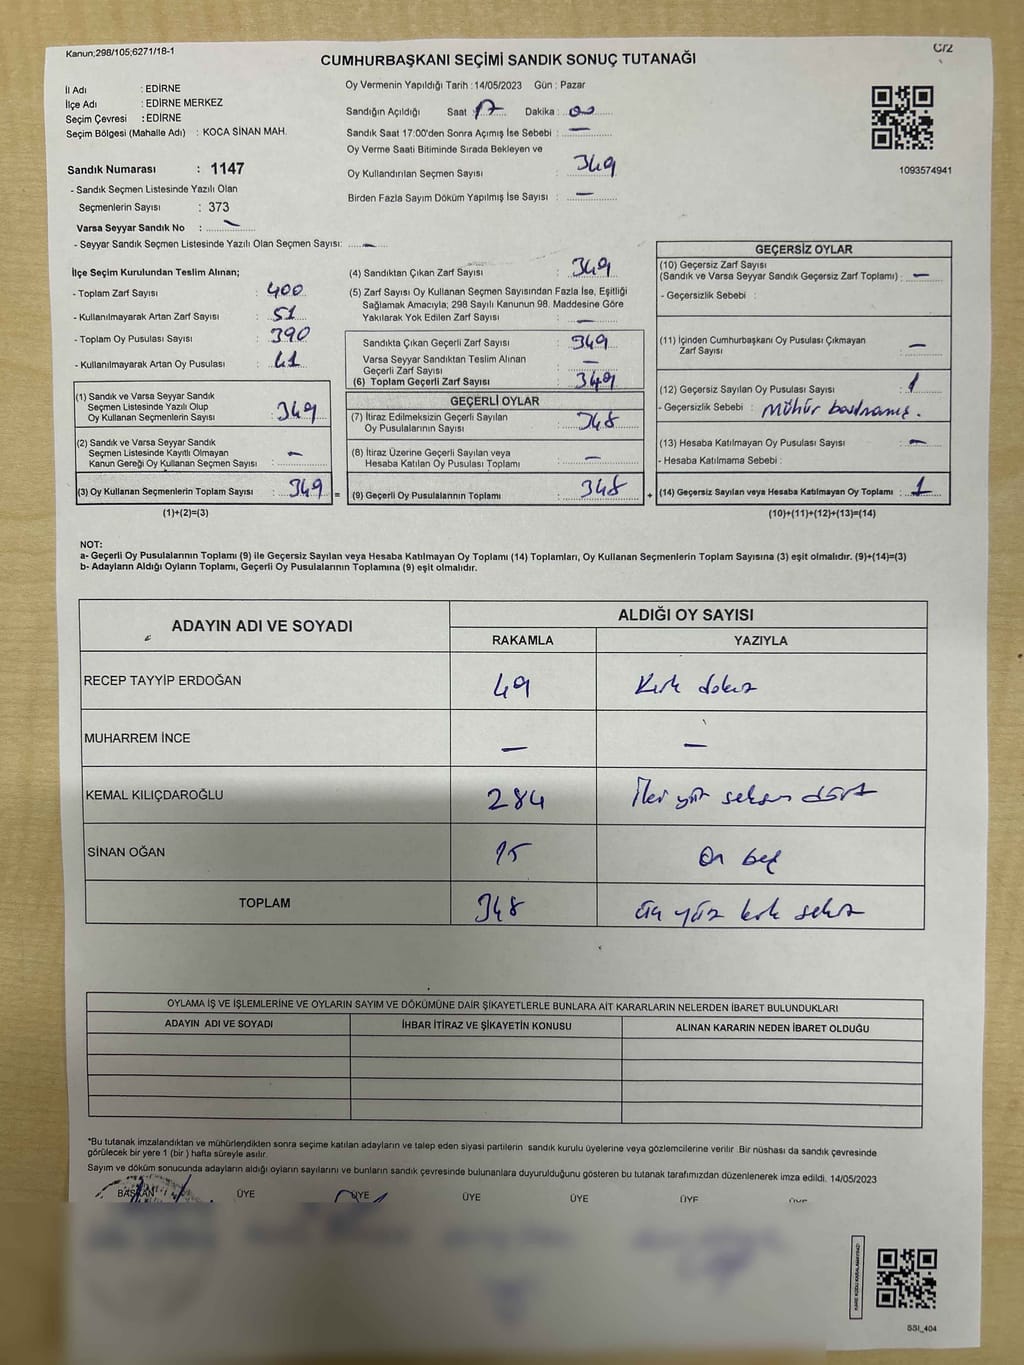 Kanun;298/105;6271/18-1
C/2
CUMHURBAŞKANI SEÇİMİ SANDIK SONUÇ TUTANAĞI
İl Adı : EDİRNE
İlçe Adı : EDİRNE MERKEZ
Seçim Çevresi : EDİRNE
Seçim Bölgesi (Mahalle Adı) : KOCA SİNAN MAH.
Sandık Numarası : 1147
- Sandık Seçmen Listesinde Yazılı Olan
Seçmenlerin Sayısı : 373
Varsa Seyyar Sandık No : –
- Seyyar Sandık Seçmen Listesinde Yazılı Olan Seçmen Sayısı: –
Oy Vermenin Yapıldığı Tarih : 14/05/2023 Gün : Pazar
Sandığın Açıldığı Saat : 17 Dakika : 00
Sandık Saat 17:00'den Sonra Açımış İse Sebebi : –
Oy Verme Saati Bitiminde Sırada Bekleyen ve
Oy Kullandırılan Seçmen Sayısı : 349
Birden Fazla Sayım Döküm Yapılmış İse Sayısı : –
1093574941
İlçe Seçim Kurulundan Teslim Alınan;
- Toplam Zarf Sayısı : 400
- Kullanılmayarak Artan Zarf Sayısı : 51
- Toplam Oy Pusulası Sayısı : 390
- Kullanılmayarak Artan Oy Pusulası : 41
(1) Sandık ve Varsa Seyyar Sandık
Seçmen Listesinde Yazılı Olup
Oy Kullanan Seçmenlerin Sayısı : 349
(2) Sandık ve Varsa Seyyar Sandık
Seçmen Listesinde Kayıtlı Olmayan
Kanun Gereği Oy Kullanan Seçmen Sayısı : –
(3) Oy Kullanan Seçmenlerin Toplam Sayısı : 349 =
(1)+(2)=(3)
(4) Sandıktan Çıkan Zarf Sayısı : 349
(5) Zarf Sayısı Oy Kullanan Seçmen Sayısından Fazla İse, Eşitliği
Sağlamak Amacıyla; 298 Sayılı Kanunun 98. Maddesine Göre
Yakılarak Yok Edilen Zarf Sayısı : –
Sandıkta Çıkan Geçerli Zarf Sayısı : 349
Varsa Seyyar Sandıktan Teslim Alınan
Geçerli Zarf Sayısı : –
(6) Toplam Geçerli Zarf Sayısı : 349
GEÇERLİ OYLAR
(7) İtiraz Edilmeksizin Geçerli Sayılan
Oy Pusulalarının Sayısı : 348
(8) İtiraz Üzerine Geçerli Sayılan veya
Hesaba Katılan Oy Pusulası Toplamı : –
(9) Geçerli Oy Pusulalarının Toplamı : 348 +
GEÇERSİZ OYLAR
(10) Geçersiz Zarf Sayısı
(Sandık ve Varsa Seyyar Sandık Geçersiz Zarf Toplamı) : –
- Geçersizlik Sebebi :
(11) İçinden Cumhurbaşkanı Oy Pusulası Çıkmayan
Zarf Sayısı : –
(12) Geçersiz Sayılan Oy Pusulası Sayısı : 1
- Geçersizlik Sebebi : Mühür basılmamış.
(13) Hesaba Katılmayan Oy Pusulası Sayısı : –
- Hesaba Katılmama Sebebi :
(14) Geçersiz Sayılan veya Hesaba Katılmayan Oy Toplamı : 1
(10)+(11)+(12)+(13)=(14)
NOT:
a- Geçerli Oy Pusulalarının Toplamı (9) ile Geçersiz Sayılan veya Hesaba Katılmayan Oy Toplamı (14) Toplamları, Oy Kullanan Seçmenlerin Toplam Sayısına (3) eşit olmalıdır. (9)+(14)=(3)
b- Adayların Aldığı Oyların Toplamı, Geçerli Oy Pusulalarının Toplamına (9) eşit olmalıdır.
ADAYIN ADI VE SOYADI ALDIĞI OY SAYISI
RAKAMLA YAZIYLA
RECEP TAYYİP ERDOĞAN 49 Kırk dokuz
MUHARREM İNCE – –
KEMAL KILIÇDAROĞLU 284 İki yüz seksen dört
SİNAN OĞAN 15 On beş
TOPLAM 348 üç yüz kırk sekiz
OYLAMA İŞ VE İŞLEMLERİNE VE OYLARIN SAYIM VE DÖKÜMÜNE DAİR ŞİKAYETLERLE BUNLARA AİT KARARLARIN NELERDEN İBARET BULUNDUKLARI
ADAYIN ADI VE SOYADI İHBAR İTİRAZ VE ŞİKAYETİN KONUSU ALINAN KARARIN NEDEN İBARET OLDUĞU
*Bu tutanak imzalandıktan ve mühürlendikten sonra seçime katılan adayların ve talep eden siyasi partilerin sandık kurulu üyelerine veya gözlemcilerine verilir. Bir nüshası da sandık çevresinde
görülecek bir yere 1 (bir) hafta süreyle asılır.
Sayım ve döküm sonucunda adayların aldığı oyların sayılarını ve bunların sandık çevresinde bulunanlara duyurulduğunu gösteren bu tutanak tarafımızdan düzenlenerek imza edildi. 14/05/2023
BAŞKAN ÜYE ÜYE ÜYE ÜYE ÜYE ÜYE
SSI_404